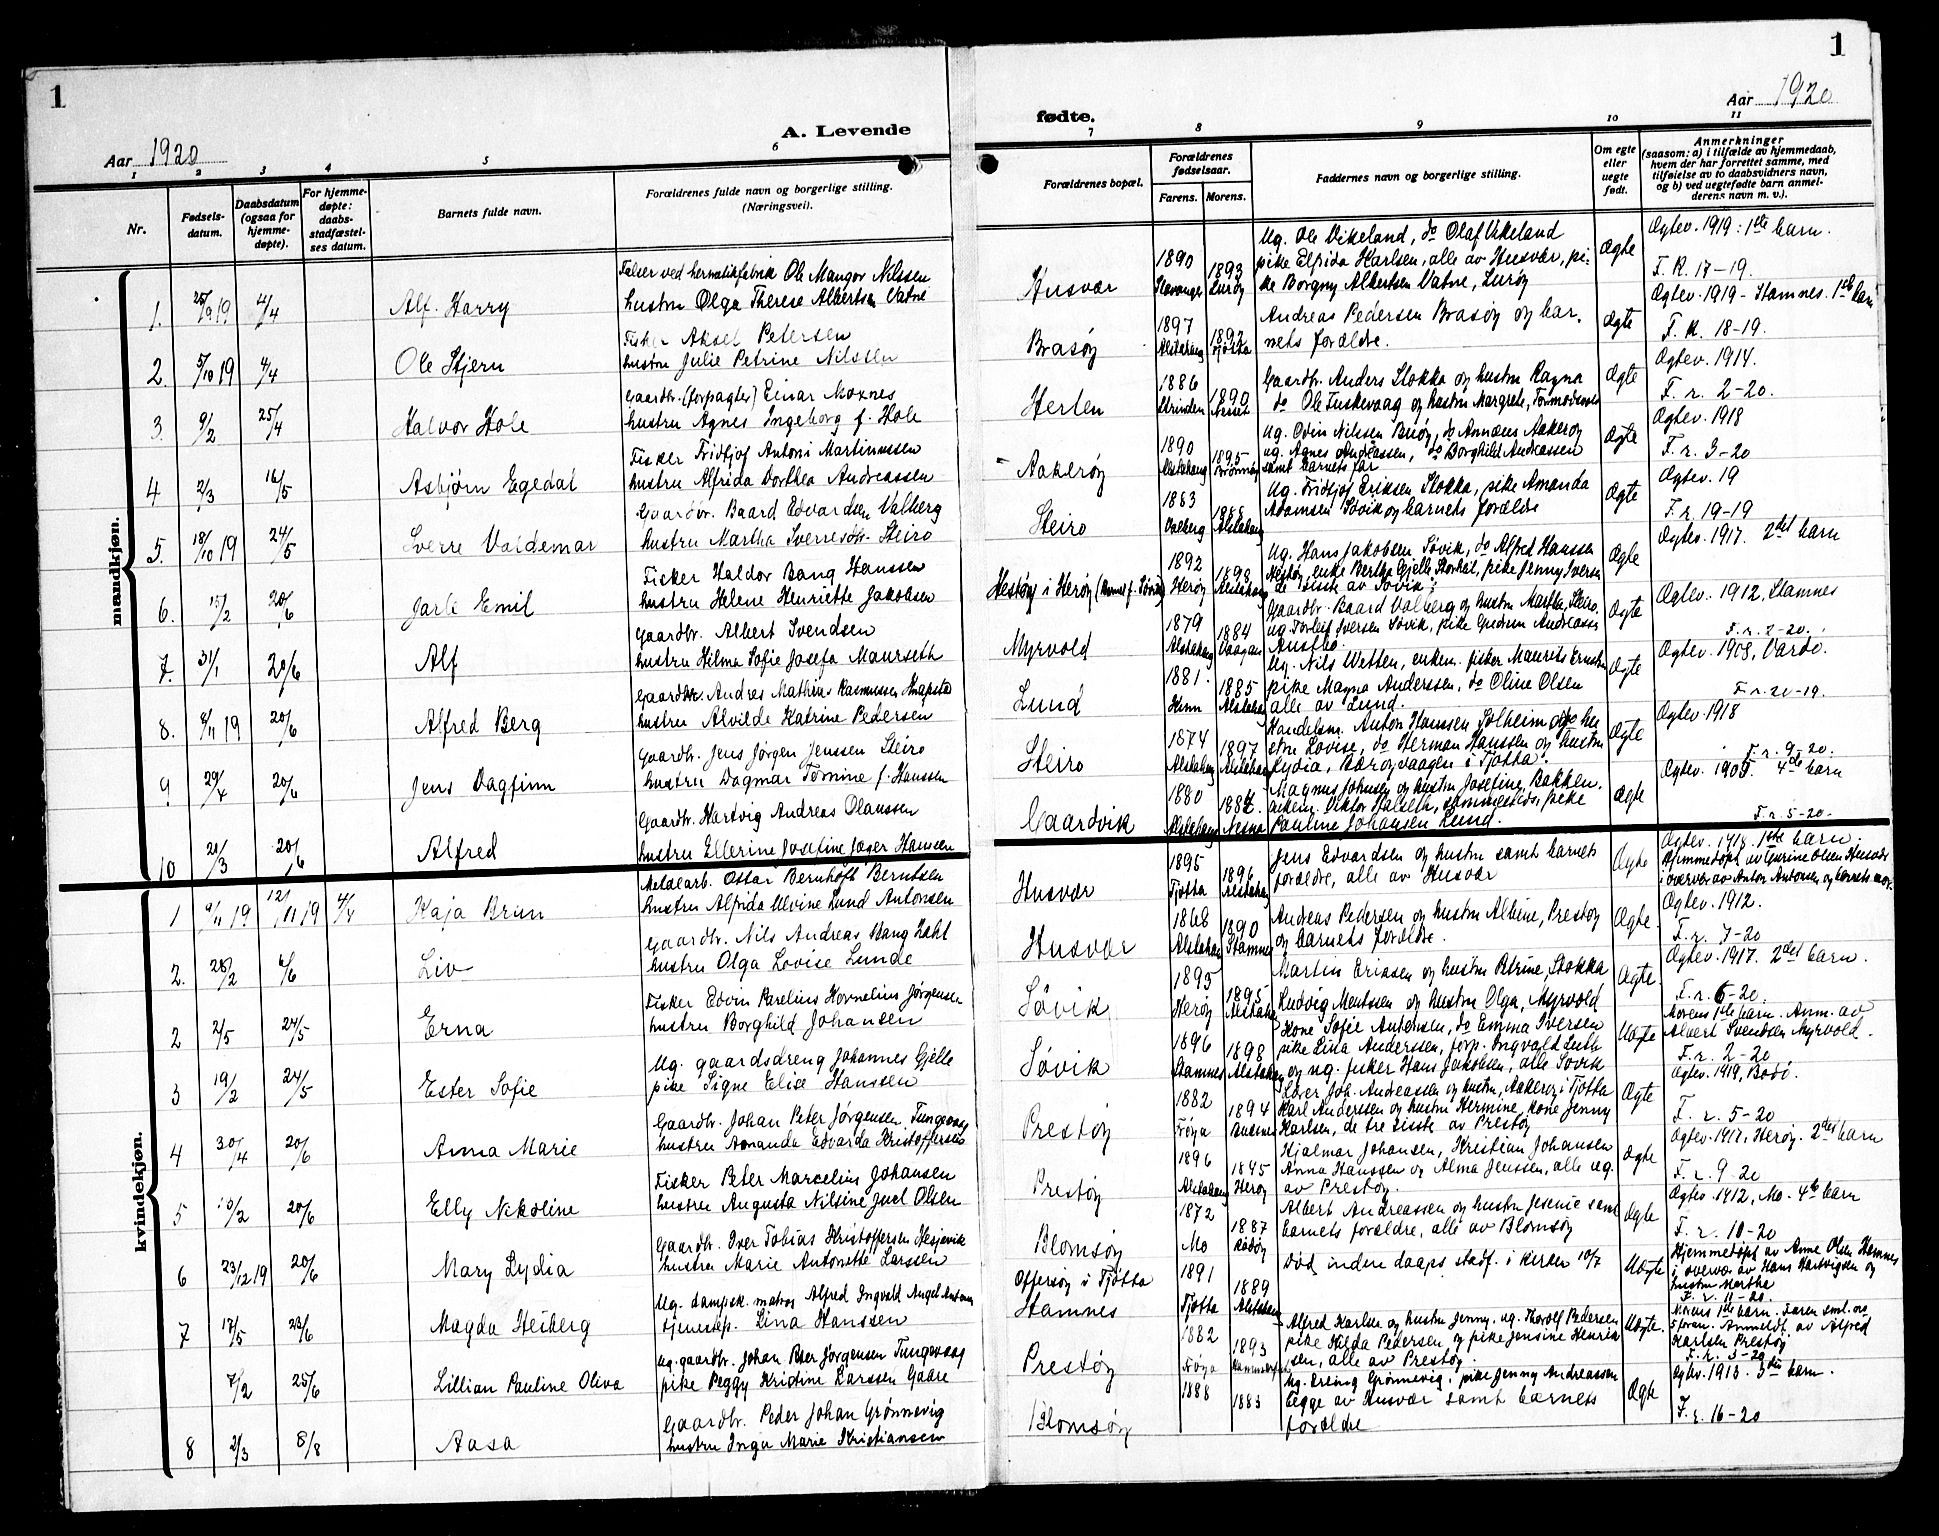 1
1
Aar 1920
A. Levende
fødte.
Aar 1920
1 2 3 4 5 6
7 8 9 10 11
Nr.
Fødsels-
datum.
Daabsdatum
(ogsaa for
hjemme-
døpte).
For hjemme-
døpte:
daabs-
stadfæstel-
ses datum.
Barnets fulde navn.
Forældrenes fulde navn og borgerlige stilling.
(Næringsvei).
Forældrenes bopæl.
Forældrenes
fødselsaar.
Farens. Morens.
Faddernes navn og borgerlige stilling.
Om egte
eller
uegte
født.
Anmerkninger
(saasom: a) i tilfælde av hjemmedaab,
hvem der har forrettet samme, med
tilføielse av to daabsvidners navn,
og b) ved uegtefødte barn anmel-
derens navn m. v.).
mandkjøn.
1. 4/4 Alf Harry
Falser ved hermetikfabrik Ole Mangor Nilssen
hustru Olga Therese Albertsen Vatne
Husvær 1890 Stavanger 1893 Lurøy
Ug. Ole Vikeland, do Olaf Vikeland
pike Elfrida Karlsen, alle av Husvær, pi-
ke Borgny Albertsen Vatne, Lurøy
Ægte
Ægtev. 1919: 1ste barn.
F. R. 17-19.
2. 5/10 19 4/4 Ole Stjern
Fisker Aksel Petersen
hustru Julie Petrine Nilssen
Brasøy 1897 Alstahaug 1892 Tjøtta
Andreas Pedersen Brasøy og bar-
nets forældre.
Ægte
Ægtev. 1919 - Stamnes. 1ste barn
F. R. 18-19.
3. 9/2 25/4 Halvor Hole
Gaardbr. (forpagter) Einar Moxnes
hustru Agnes Ingeborg f. Hole
Herlen 1886 Strinden 1890
Gaardbr. Anders Stokka og hustru Ragna
do Ole Tuskevaag og hustru Margrete,
Ægte
Ægtev. 1914.
F. r. 2-20.
4 2/3 16/5 Asbjørn Egedal
Fisker Fridtjof Antoni Martinussen
hustru Alfrida Dorthea Andreassen
Aakerøy 1890 Alstahaug 1895 Brønnøy
Ug. Odin Nilssen Buøy, do Annæus Aakerøy
ug. Agnes Andreassen, do Borghild Andreassen
samt barnets far
Ægte
Ægtev. 1918
F. r. 3-20
5. 18/10 19 24/5 Sverre Valdemar
Gaardbr. Baard Edvardsen Valberg
hustru Martha Sverresdr. Steiro
Steiro 1883 Valberg 1888 Alstahaug
Ug. Fridtjof Eriksen Stokka, pike Amanda
Adamsen Søvik og barnets forældre
Ægte
Ægtev. 19
F. r. 19-19
6. 20/6 Jarle Emil
Fisker Haldor Bang Hanssen
hustru Helene Henriette Jakobsen
Hestøy i Herøy 1892 Herøy Alstahaug
Ug. Hans Jakobsen Søvik, do Alfred Hanssen
Hestøy, enke Bertha Gjelle Storhal, pike Jenny Iversen
de siste av Søvik.
Ægte
Ægtev. 1917. 2det barn
7. 31/1 20/6 Alf
Gaardbr. Albert Svendsen
hustru Hilma Sofie Josefa Maurseth
Myrvold 1879 Alstahaug 1884 Vaagan
Gaardbr. Baard Valberg og hustru Martha, Steiro,
ug. Torleif Iversen Søvik, pike Gudrun Andreass
Austbø.
Ægte
Ægtev. 1912, Stamnes
F. r. 2-20.
8. 8/11 19 20/6 Alfred Berg
Gaardbr. Andreas Mathias Rasmussen Knapstad
hustru Alvilde Katrine Pedersen
Lund 1881. 1885 Alstahaug
Ug. Nils Wetten, enkem. fisker Maurits Ernstsen
pike Magna Anderssen, do Oline Olsen
alle av Lund.
Ægte
Ægtev. 1908, Vardø.
F. r. 20-19.
9 29/4 20/6 Jens Dagfinn
Gaardbr. Jens Jørgen Jenssen Steiro
hustru Dagmar Tomine f. Hanssen
Steiro 1874 Alstahaug 1897 Alstahaug
Handelsm. Anton Hanssen Solheim og hu-
stru Lovise, do Herman Hanssen og hustru
Lydia, Bærøyvaagen i Tjøtta.
Ægte
Ægtev. 1918
F. r. 9-20.
10 20/3 20/6 Alfred
Gaardbr. Hartvig Andreas Olaussen
hustru Ellerine Josefine Jæger Hanssen
Gaardvik 1880 Alstahaug Nesna
Magnus Johnsen og hustru Josefine, Bakken,
enkem. Viktor Halseth, sammesteds, pike
Pauline Johansen Lund.
Ægte
4de barn
F. r. 5-20.
kvindekjøn.
1 9/11 19 12/11 19 4/4 Kaja Brun
Metalarb. Ottar Bernhoft Berntsen
hustru Alfrida Alvine Lund Antonsen
Husvær 1895 Tjøtta 1896 Alstahaug
Jens Edvardsen og hustru samt barnets
forældre, alle av Husvær
Ægte
Ægtev. 1918. 1ste barn.
Hjemmedøpt av Gurine Olsen Husvær
i overvær av Anton Antonsen og barnets mor.
2. 6/6 Liv
Gaardbr. Nils Andreas Zahl
hustru Olga Lovise Lunde
Husvær 1868 Alstahaug 1890 Stamnes
Andreas Pedersen og hustru Albine, Prestøy
og barnets forældre.
Ægte.
Ægtev. 1912.
F. r. 7-20
2 2/5 24/5 Erna
Fisker Edvin Parelius Kornelius Jørgensen
hustru Borghild Johansen
Søvik 1895 Herøy 1895 Alstahaug
Martin Eriksen og hustru Petrine, Stokka
Ludvig Mentssen og hustru Olga, Myrvold
Ægte.
Ægtev. 1917. 2det barn.
F. r. 6-20.
3 19/2 24/5 Ester Sofie
Ug. gaardsdreng Johannes Gjelle
pike Signe Elise Hanssen
Søvik 1896 Stamnes 1898 Alstahaug
Kone Sofie Antonsen, do Emma Iversen
pike Lina Anderssen, forp. Ingvald Luth
og ug. fisker Hans Jakobsen, alle Søvik
Uægte
Morens 1ste barn. Anm. av
Albert Svendsen Myrvold.
F. r. 2-20
4 30/4 20/6 Anna Marie
Gaardbr. Johan Peter Jørgensen Tungevaag
hustru Amanda Edvarda Kristoffersen
Prestøy 1882 Frøya 1894
Joh. Andreassen og hustru, Aakerøy i Tjøtta
Karl Anderssen og hustru Hermine, kone Jenny
Karlsen, de tre siste av Prestøy
Ægte
Ægtev. 1919, Bodø.
F. r. 5-20
5 20/6 Elly Nikoline
Fisker Peter Marcelius Johansen
hustru Augusta Nilsine Juel Olsen
Prestøy 1896 Alstahaug Herøy
Hjalmar Johansen, Kristian Johansen
Anna Hanssen og Alma Jenssen, alle ug.
av Prestøy.
Ægte
Ægtev. 1917, Herøy. 2det barn
F. r. 9-20
6 23/12 19 20/6 Mary Lydia
Gaardbr. Iver Tobias Kristoffersen Hesjevik
hustru Marie Antonette Larssen
Blomsøy 1872 Mo 1887 Rødøy
Albert Andreassen og hustru Jesenie samt
barnets forældre, alle av Blomsøy
Ægte
Ægtev. 1912, Mo. 4de barn
F. r. 10-20
7 17/5 Magda Heiberg
Ug. dampsk. matros Alfred Ingvald Angel Antonsen
tjenestep. Lina Hanssen
Offersøy i Tjøtta
Stamnes 1891 Tjøtta 1889 Alstahaug
Død inden daaps stadf. i kirken 10/7
Uægte
Hjemmedøpt av Anne Olsen Hamnes
i overvær av Hans Hartvigsen og
hustru Martha
F. r. 11-20.
7/2 25/6 Lillian Pauline Oliva
Ug. gaardbr. Johan Peter Jørgensen Tungevaag
pike Peggy Kristine Larssen Gaare
Prestøy 1882 Frøya 1893
Alfred Karlsen og hustru Jenny, ug. Thorolf Pedersen
pike Hilda Pedersen og pike Jensine Henrik
sen, alle av Prestøy.
Uægte.
Morens 1ste barn.
Anmeldt av Alfred
Karlsen Prestøy
F. r. 3-20
8 2/3 8/8 Aasa
Gaardbr. Peder Johan Grønnevig
hustru Inga Marie Kristiansen
Blomsøy 1888 1883
Ug. Erling Grønnevig, pike Jenny Andreassen
begge av Husvær samt barnets
forældre
Ægte
3die barn.
F. r. 16-20